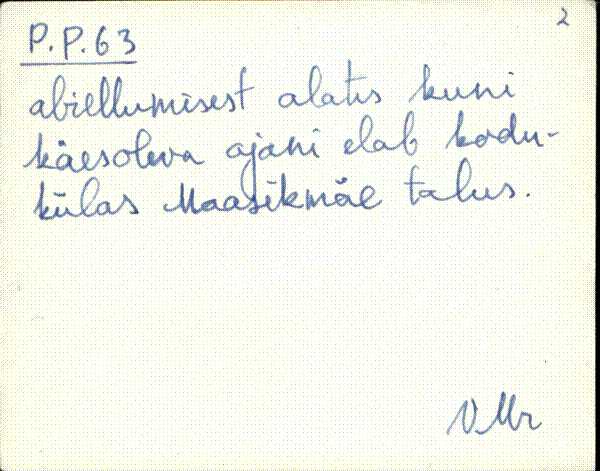 2
P.P.63
abiellumisest alates kuni
käesoleva ajani elab kodu-
külas Maasikmäe talus.
V.Mr